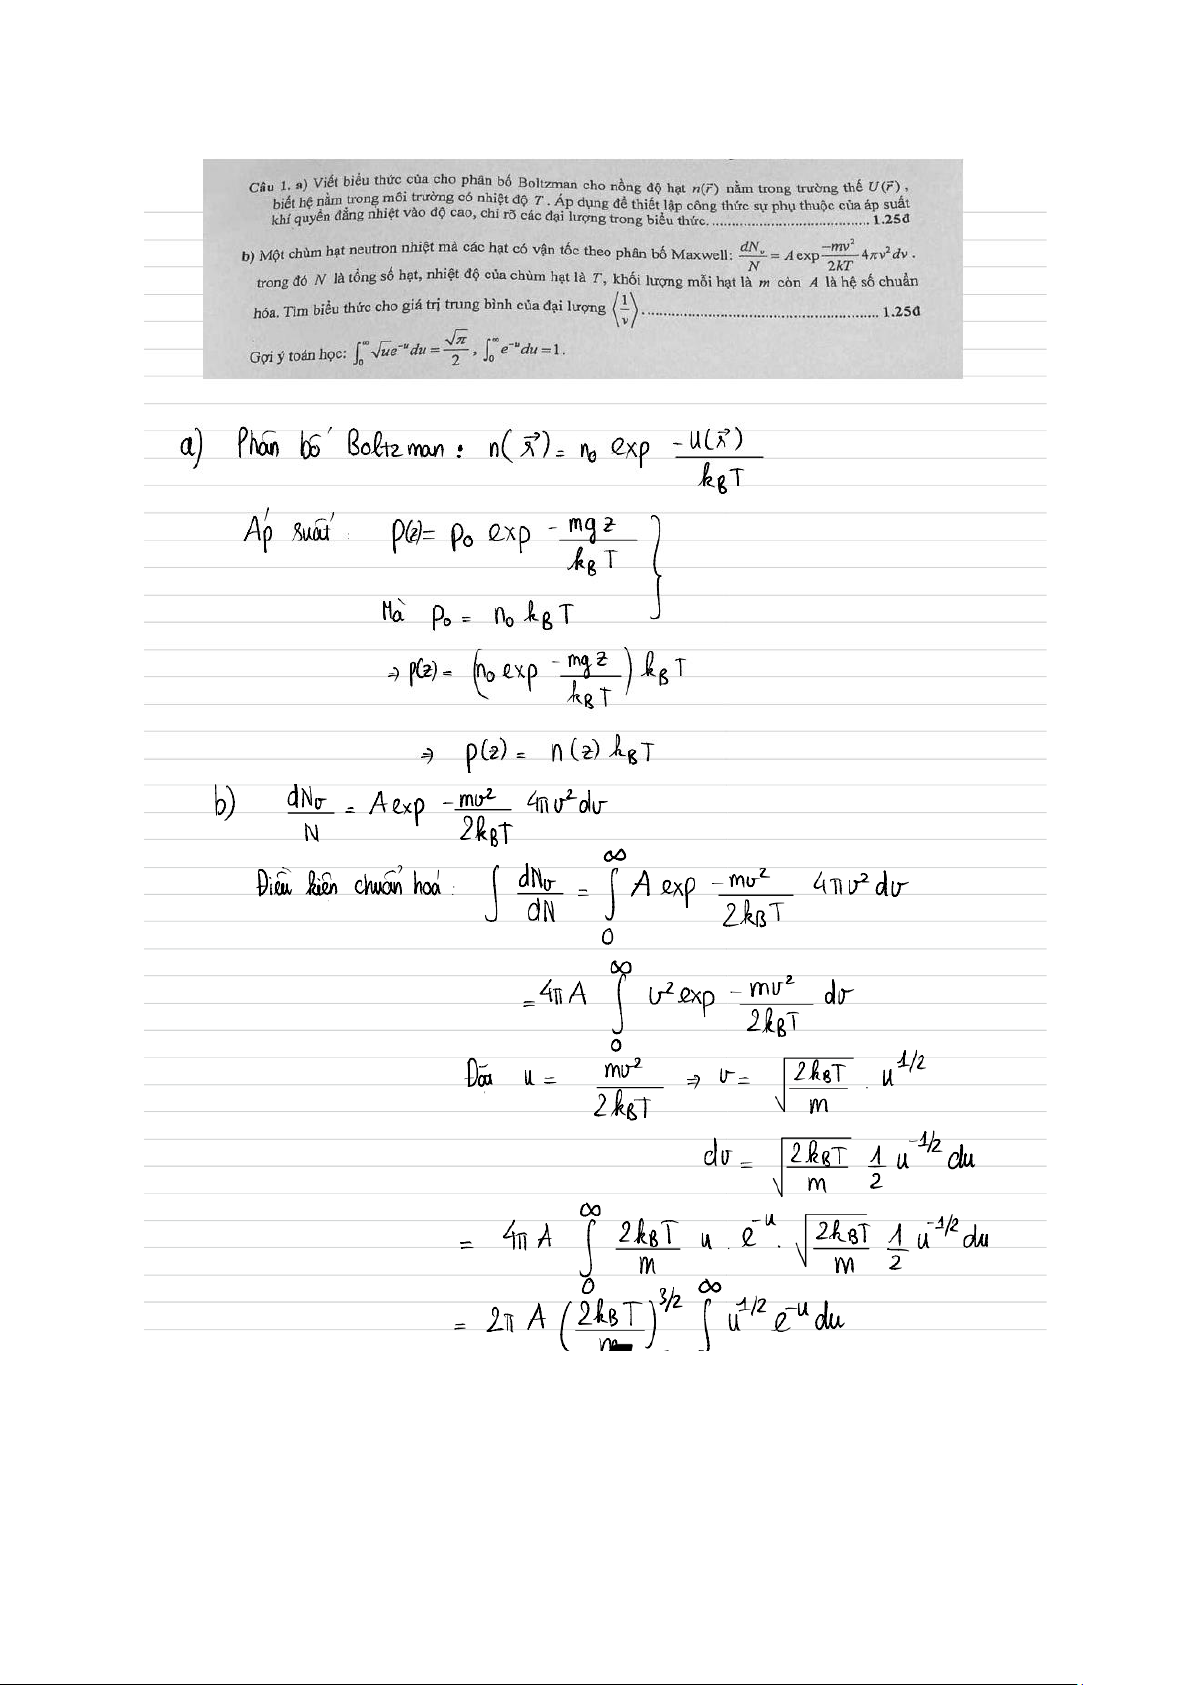 Câu 1. a) Viết biểu thức của cho phân bố Boltzman cho nồng độ hạt n(r⃗) nằm trong trường thế U(r⃗),
biết hệ nằm trong môi trường có nhiệt độ T. Áp dụng để thiết lập công thức sự phụ thuộc của áp suất
khí quyển đẳng nhiệt vào độ cao, chỉ rõ các đại lượng trong biểu thức. ........................................ 1.25đ
b) Một chùm hạt neutron nhiệt mà các hạt có vận tốc theo phân bố Maxwell: dN_v/N = A exp (-mv²)/(2kT) 4πv²dv.
trong đó N là tổng số hạt, nhiệt độ của chùm hạt là T, khối lượng mỗi hạt là m còn A là hệ số chuẩn
hóa. Tìm biểu thức cho giá trị trung bình của đại lượng ⟨1/v⟩. ........................................ 1.25đ
Gợi ý toán học: ∫₀^∞ √u e^(-u) du = √π/2, ∫₀^∞ e^(-u) du = 1.
a) Phân bố Boltzman: n(r⃗) = n₀ exp -U(r⃗)/(k_B T)
Áp suất: p(z) = p₀ exp -mgz/(k_B T)
Mà p₀ = n₀ k_B T
⇒ p(z) = (n₀ exp -mgz/(k_B T)) k_B T
⇒ p(z) = n(z) k_B T
b) dN_v/N = A exp -mv²/(2k_B T) 4πv²dv
Điều kiên chuẩn hoá: ∫ dN_v/dN = ∫₀^∞ A exp -mv²/(2k_B T) 4πv²dv
= 4πA ∫₀^∞ v² exp -mv²/(2k_B T) dv
u = mv²/(2k_B T) ⇒ v = √(2k_B T/m) . u^(1/2)
dv = √(2k_B T/m) 1/2 u^(-1/2) du
= 4πA ∫₀^∞ 2k_B T/m u . e^(-u) . √(2k_B T/m) 1/2 u^(-1/2) du
= 2πA (2k_B T/m)^(3/2) ∫₀^∞ u^(1/2) e^(-u) du